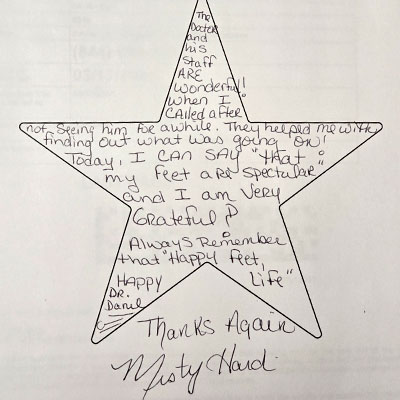 The
Doctor
and
his
Staff
ARE
Wonderful!
When I
CAlled after
not seeing him for awhile. They helped me with
finding out what was going on!
Today, I CAN SAY "that
my feet are spectular"
and I am very
Grateful!
Always Remember
that "Happy feet,
HAPPY Life"
DR.
Thanks Again
Misty